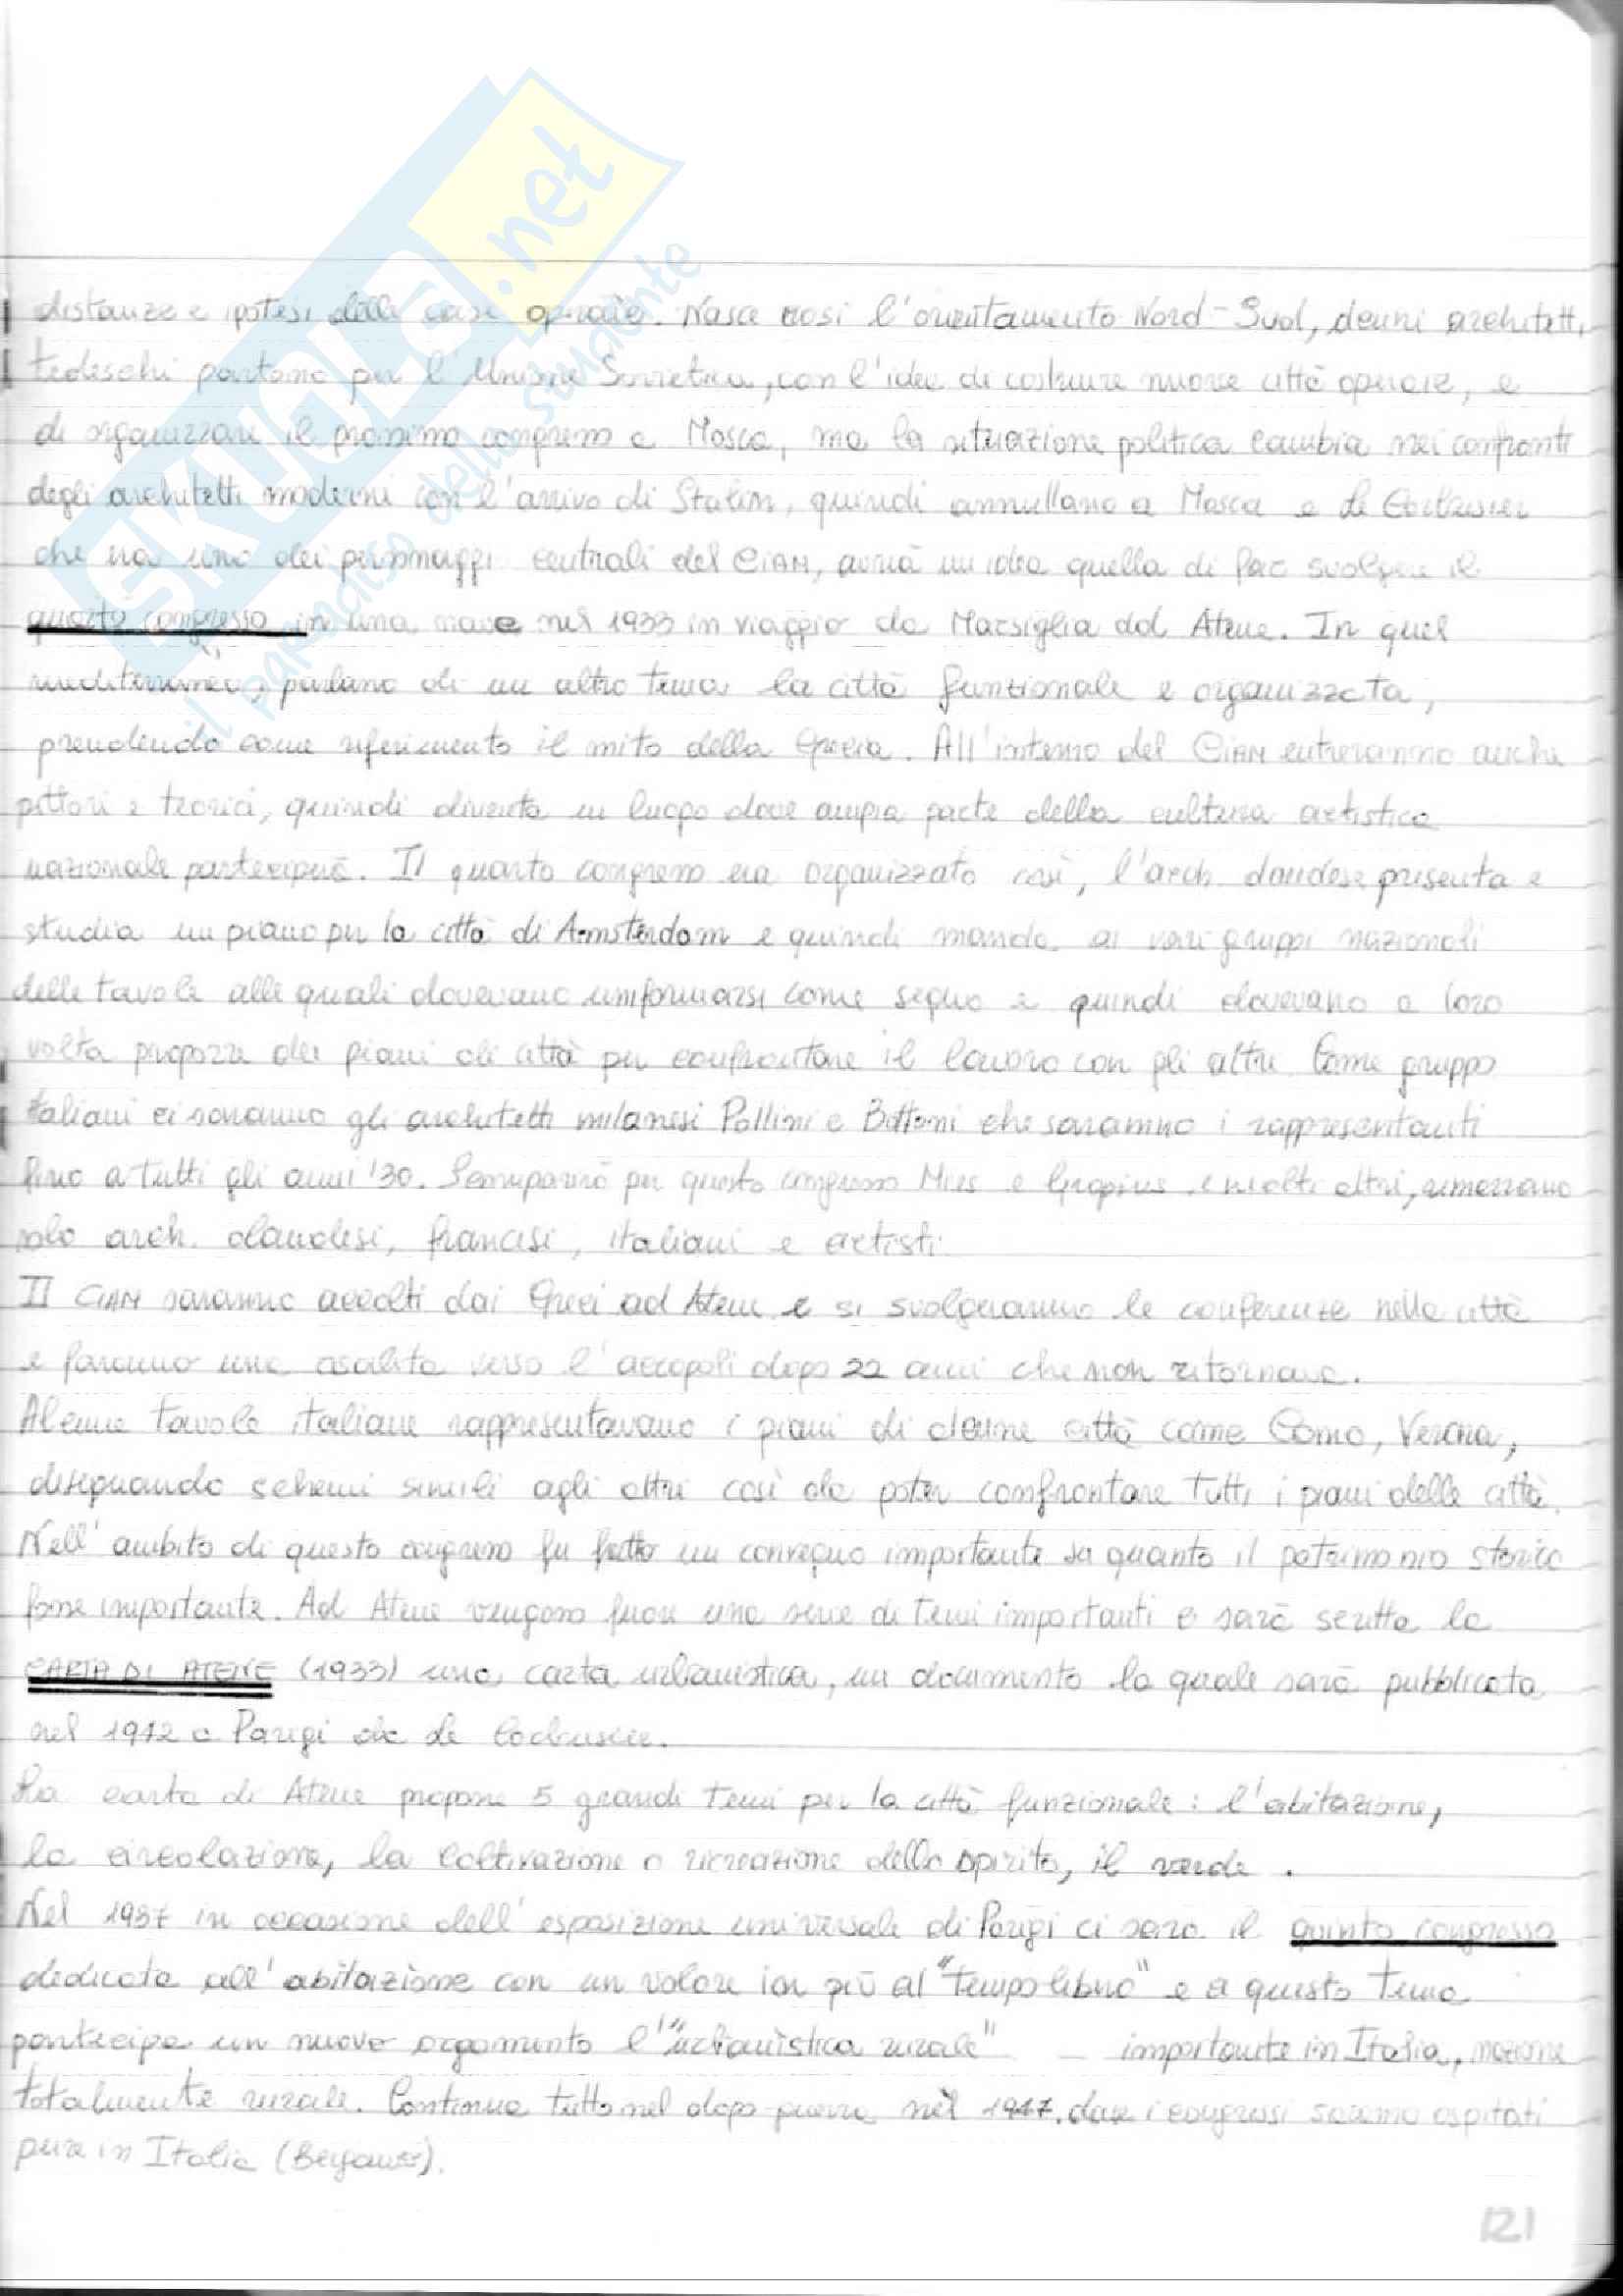 SKUOLA.net
il paradiso dello studente
distanze e ipotesi delle case operaie. Nasce così l'orientamento Nord-Sud, alcuni architetti
tedeschi partono per l'Unione Sovietica, con l'idea di costruire nuove città operaie, e
di organizzare il prossimo congresso a Mosca, ma la situazione politica cambia nei confronti
degli architetti moderni con l'arrivo di Stalin, quindi annullano a Mosca e Le Corbusier
che era uno dei personaggi centrali del CIAM, avrà un idea quella di far svolgere il
quarto congresso in una nave nel 1933 in viaggio da Marsiglia ad Atene. In quel
mediterraneo, parlano di un altro tema la città funzionale e organizzata,
prendendo come riferimento il mito della Grecia. All'interno del CIAM entreranno anche
pittori e teorici, quindi diventa un luogo dove ampia parte della cultura artistica
nazionale parteciperà. Il quarto congresso era organizzato così, l'arch. olandese presenta e
studia un piano per la città di Amsterdam e quindi manda ai vari gruppi nazionali
delle tavole alle quali dovevano uniformarsi come segno e quindi dovevano a loro
volta proporre dei piani di città per confrontare il lavoro con gli altri. Come gruppo
italiani ci saranno gli architetti milanesi Pollini e Bottoni che saranno i rappresentanti
fino a tutti gli anni '30. Scomparirà per questo congresso Mies e Gropius e molti altri, rimarranno
solo arch. olandesi, francesi, italiani e artisti.
Il CIAM saranno accolti dai Greci ad Atene e si svolgeranno le conferenze nella città
e faranno una salita verso l'acropoli dopo 22 anni che non ritornava.
Alcune tavole italiane rappresentavano i piani di alcune città come Como, Verona,
disegnando schemi simili agli altri così da poter confrontare tutti i piani delle città.
Nell'ambito di questo congresso fu fatto un convegno importante su quanto il patrimonio storico
fosse importante. Ad Atene vengono fuori una serie di temi importanti e sarà scritta la
CARTA DI ATENE (1933) una carta urbanistica, un documento la quale sarà pubblicata
nel 1942 a Parigi da Le Corbusier.
La carta di Atene propone 5 grandi temi per la città funzionale: l'abitazione,
la circolazione, la coltivazione o ricreazione dello spirito, il verde.
Nel 1937 in occasione dell'esposizione universale di Parigi ci sarà il quinto congresso
dedicato all'abitazione con un valore in più al "tempo libero" e a questo tema
partecipa un nuovo argomento l'"urbanistica rurale" - importante in Italia, nazione
totalmente rurale. Continua tutto nel dopo guerra nel 1947. due i congressi saranno ospitati
pure in Italia (Bergamo).
121